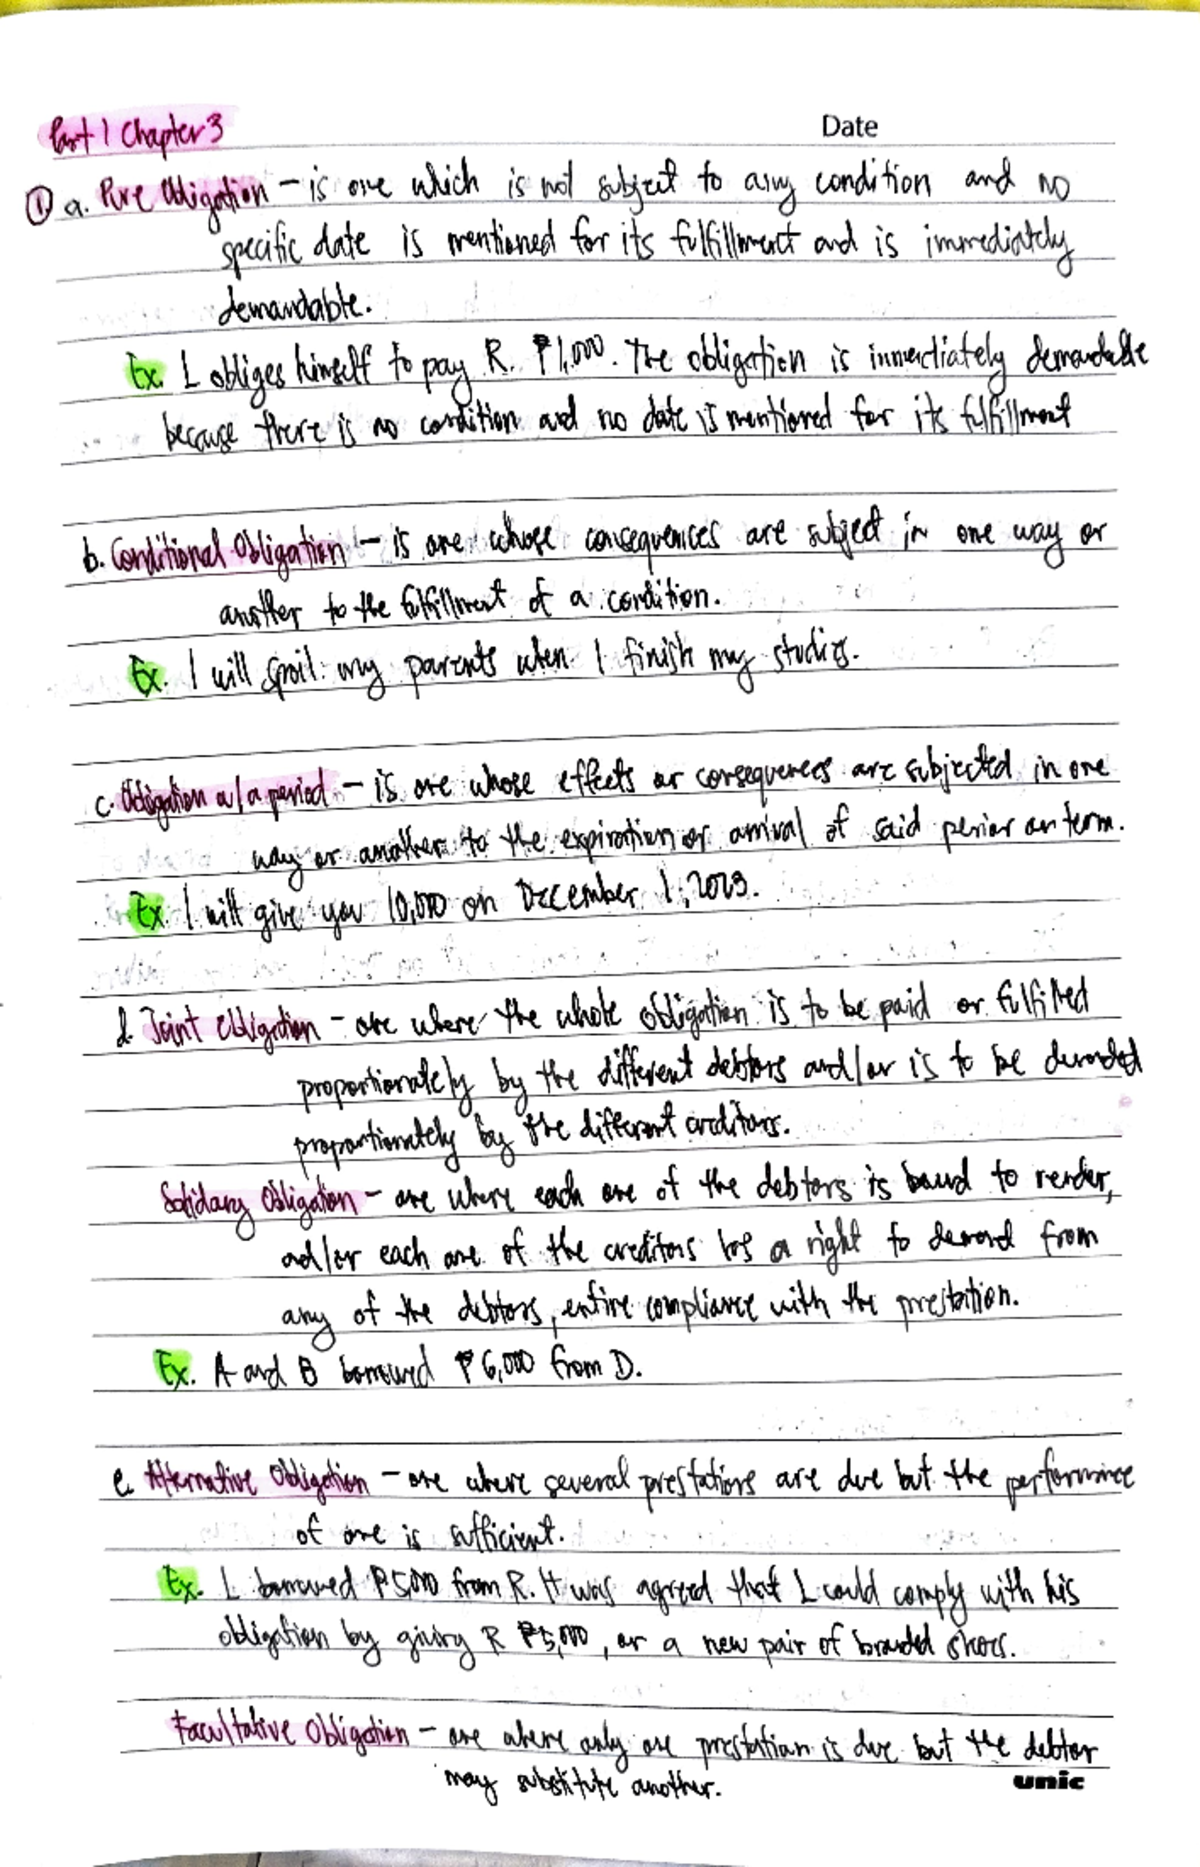 Part 1 Chapter 3
Date
① a. Pure Obligation - is one which is not subject to any condition and no
specific date is mentioned for its fulfillment and is immediately
demandable.
Ex. L obliges himself to pay R. ₱1,000. The obligation is immediately demandable
because there is no condition and no date is mentioned for its fulfillment
b. Conditional Obligation - is one whose consequences are subject in one way or
another to the fulfillment of a condition.
Ex. I will spoil my parents when I finish my studies.
c. Obligation w/ a period - is one whose effects or consequences are subjected in one
way or another to the expiration or arrival of said period or term.
Ex. I will give you 10,000 on December 1, 2023.
d. Joint Obligation - one where the whole obligation is to be paid or fulfilled
proportionately by the different debtors and/or is to be demanded
proportionately by the different creditors.
Solidary Obligation - one where each one of the debtors is bound to render,
and/or each one of the creditors has a right to demand from
any of the debtors, entire compliance with the prestation.
Ex. A and B borrowed ₱6,000 from D.
e. Alternative Obligation - one where several prestations are due but the performance
of one is sufficient.
Ex. L borrowed ₱5,000 from R. It was agreed that L could comply with his
obligation by giving R ₱5,000, or a new pair of branded shoes.
Facultative Obligation - one where only one prestation is due but the debtor
may substitute another.
unic